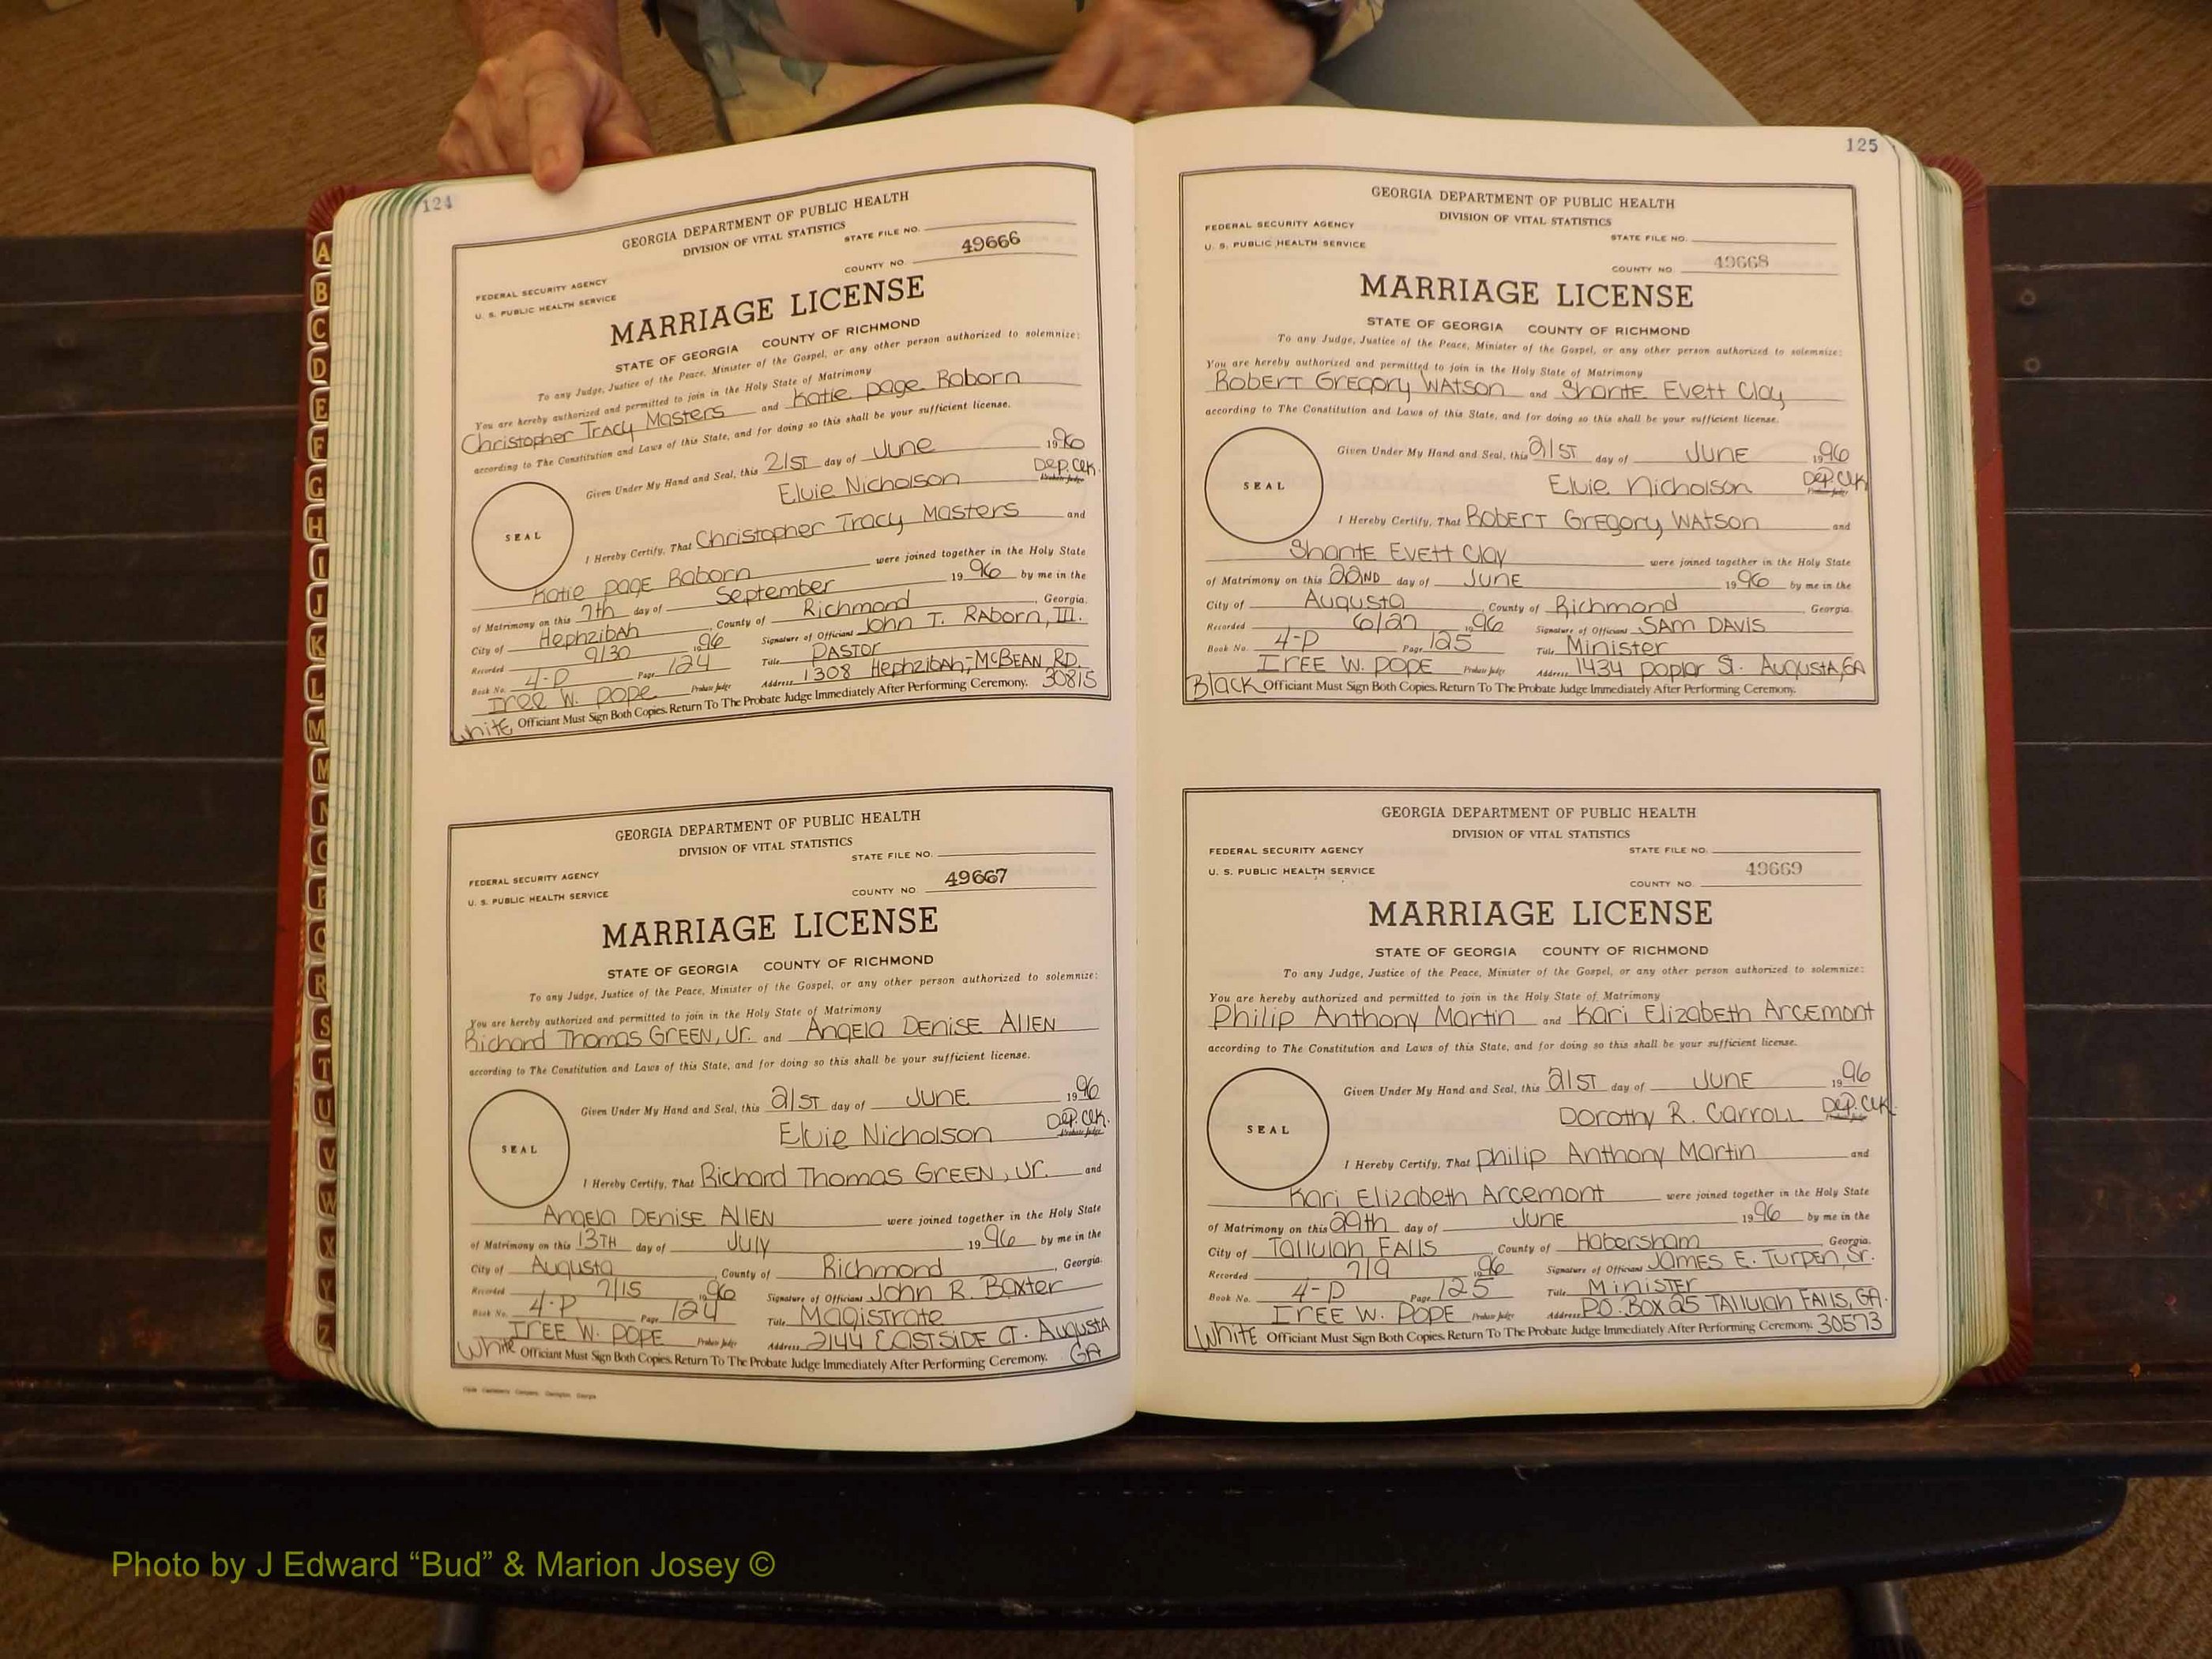 124
GEORGIA DEPARTMENT OF PUBLIC HEALTH
DIVISION OF VITAL STATISTICS
STATE FILE NO.
FEDERAL SECURITY AGENCY
U. S. PUBLIC HEALTH SERVICE
COUNTY NO. 49666
MARRIAGE LICENSE
STATE OF GEORGIA COUNTY OF RICHMOND
To any Judge, Justice of the Peace, Minister of the Gospel, or any other person authorized to solemnize:
You are hereby authorized and permitted to join in the Holy State of Matrimony
Christopher Tracy Masters and Katie Page Raborn
according to The Constitution and Laws of this State, and for doing so this shall be your sufficient license.
Given Under My Hand and Seal, this 21ST day of June 1996
Elvie Nicholson Dep. Clk. Probate Judge
SEAL
I Hereby Certify, That Christopher Tracy Masters and
Katie Page Raborn were joined together in the Holy State
of Matrimony on this 7th day of September 1996 by me in the
City of Hephzibah, County of Richmond, Georgia.
Recorded 9/30 1996 Signature of Officiant John T. Raborn, III.
Book No. 4-P Page 124 Title PASTOR
Iree W. Pope Probate Judge Address 1308 Hephzibah-McBean RD.
White Officiant Must Sign Both Copies. Return To The Probate Judge Immediately After Performing Ceremony. 30815
GEORGIA DEPARTMENT OF PUBLIC HEALTH
DIVISION OF VITAL STATISTICS
STATE FILE NO.
FEDERAL SECURITY AGENCY
U. S. PUBLIC HEALTH SERVICE
COUNTY NO 49667
MARRIAGE LICENSE
STATE OF GEORGIA COUNTY OF RICHMOND
To any Judge, Justice of the Peace, Minister of the Gospel, or any other person authorized to solemnize:
You are hereby authorized and permitted to join in the Holy State of Matrimony
Richard Thomas Green, Jr. and Angela Denise Allen
according to The Constitution and Laws of this State, and for doing so this shall be your sufficient license.
Given Under My Hand and Seal, this 21ST day of June 1996
Elvie Nicholson Dep. Clk. Probate Judge
SEAL
I Hereby Certify, That Richard Thomas Green, Jr. and
Angela Denise Allen were joined together in the Holy State
of Matrimony on this 13TH day of July 1996 by me in the
City of Augusta, County of Richmond, Georgia.
Recorded 7/15 1996 Signature of Officiant John R. Baxter
Book No. 4-P Page 124 Title Magistrate
IREE W. POPE Probate Judge Address 2144 EASTSIDE CT. Augusta
White Officiant Must Sign Both Copies. Return To The Probate Judge Immediately After Performing Ceremony. GA
125
GEORGIA DEPARTMENT OF PUBLIC HEALTH
DIVISION OF VITAL STATISTICS
FEDERAL SECURITY AGENCY
STATE FILE NO.
U. S. PUBLIC HEALTH SERVICE
COUNTY NO 49668
MARRIAGE LICENSE
STATE OF GEORGIA COUNTY OF RICHMOND
To any Judge, Justice of the Peace, Minister of the Gospel, or any other person authorized to solemnize:
You are hereby authorized and permitted to join in the Holy State of Matrimony
Robert Gregory Watson and Shante Evett Clay
according to The Constitution and Laws of this State, and for doing so this shall be your sufficient license.
Given Under My Hand and Seal, this 21ST day of June 1996
Elvie Nicholson Dep. Clk Probate Judge
SEAL
I Hereby Certify, That Robert Gregory Watson and
Shante Evett Clay were joined together in the Holy State
of Matrimony on this 22ND day of June 1996 by me in the
City of Augusta, County of Richmond Georgia.
Recorded 6/27 1996 Signature of Officiant SAM DAVIS
Book No. 4-P Page 125 Title Minister
IREE W. POPE Probate Judge Address 1434 Poplar St. Augusta, GA
Black Officiant Must Sign Both Copies. Return To The Probate Judge Immediately After Performing Ceremony.
GEORGIA DEPARTMENT OF PUBLIC HEALTH
DIVISION OF VITAL STATISTICS
FEDERAL SECURITY AGENCY
STATE FILE NO.
U. S. PUBLIC HEALTH SERVICE
COUNTY NO. 49669
MARRIAGE LICENSE
STATE OF GEORGIA COUNTY OF RICHMOND
To any Judge, Justice of the Peace, Minister of the Gospel, or any other person authorized to solemnize:
You are hereby authorized and permitted to join in the Holy State of Matrimony
Philip Anthony Martin and Kari Elizabeth Arcemont
according to The Constitution and Laws of this State, and for doing so this shall be your sufficient license.
Given Under My Hand and Seal, this 21ST day of June 1996
Dorothy R. Carroll Dep. Clk. Probate Judge
SEAL
I Hereby Certify, That Philip Anthony Martin and
Kari Elizabeth Arcemont were joined together in the Holy State
of Matrimony on this 29th day of June 1996 by me in the
City of Tallulah Falls, County of Habersham, Georgia.
Recorded 7/9 1996 Signature of Officiant James E. Turpen, Sr.
Book No. 4-P Page 125 Title Minister
IREE W. POPE Probate Judge Address P.O. Box 25 Tallulah Falls, GA.
White Officiant Must Sign Both Copies. Return To The Probate Judge Immediately After Performing Ceremony. 30573
A
B
C
D
E
F
G
H
I
J
K
L
M
M
N
O
P
Q
R
S
T
U
V
W
X
Y
Z
Photo by J Edward “Bud” & Marion Josey ©